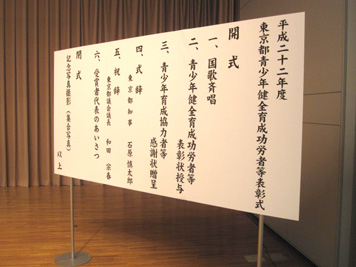 平成二十二年度
東京都青少年健全育成功労者等表彰式
開式
一、国歌斉唱
二、青少年健全育成功労者等
表彰状授与
三、青少年育成協力者等
感謝状贈呈
四、式辞
東京都知事 石原慎太郎
五、祝辞
東京都議会議長 和田宗春
六、受賞者代表のあいさつ
閉式
記念写真撮影(集合写真)
以上